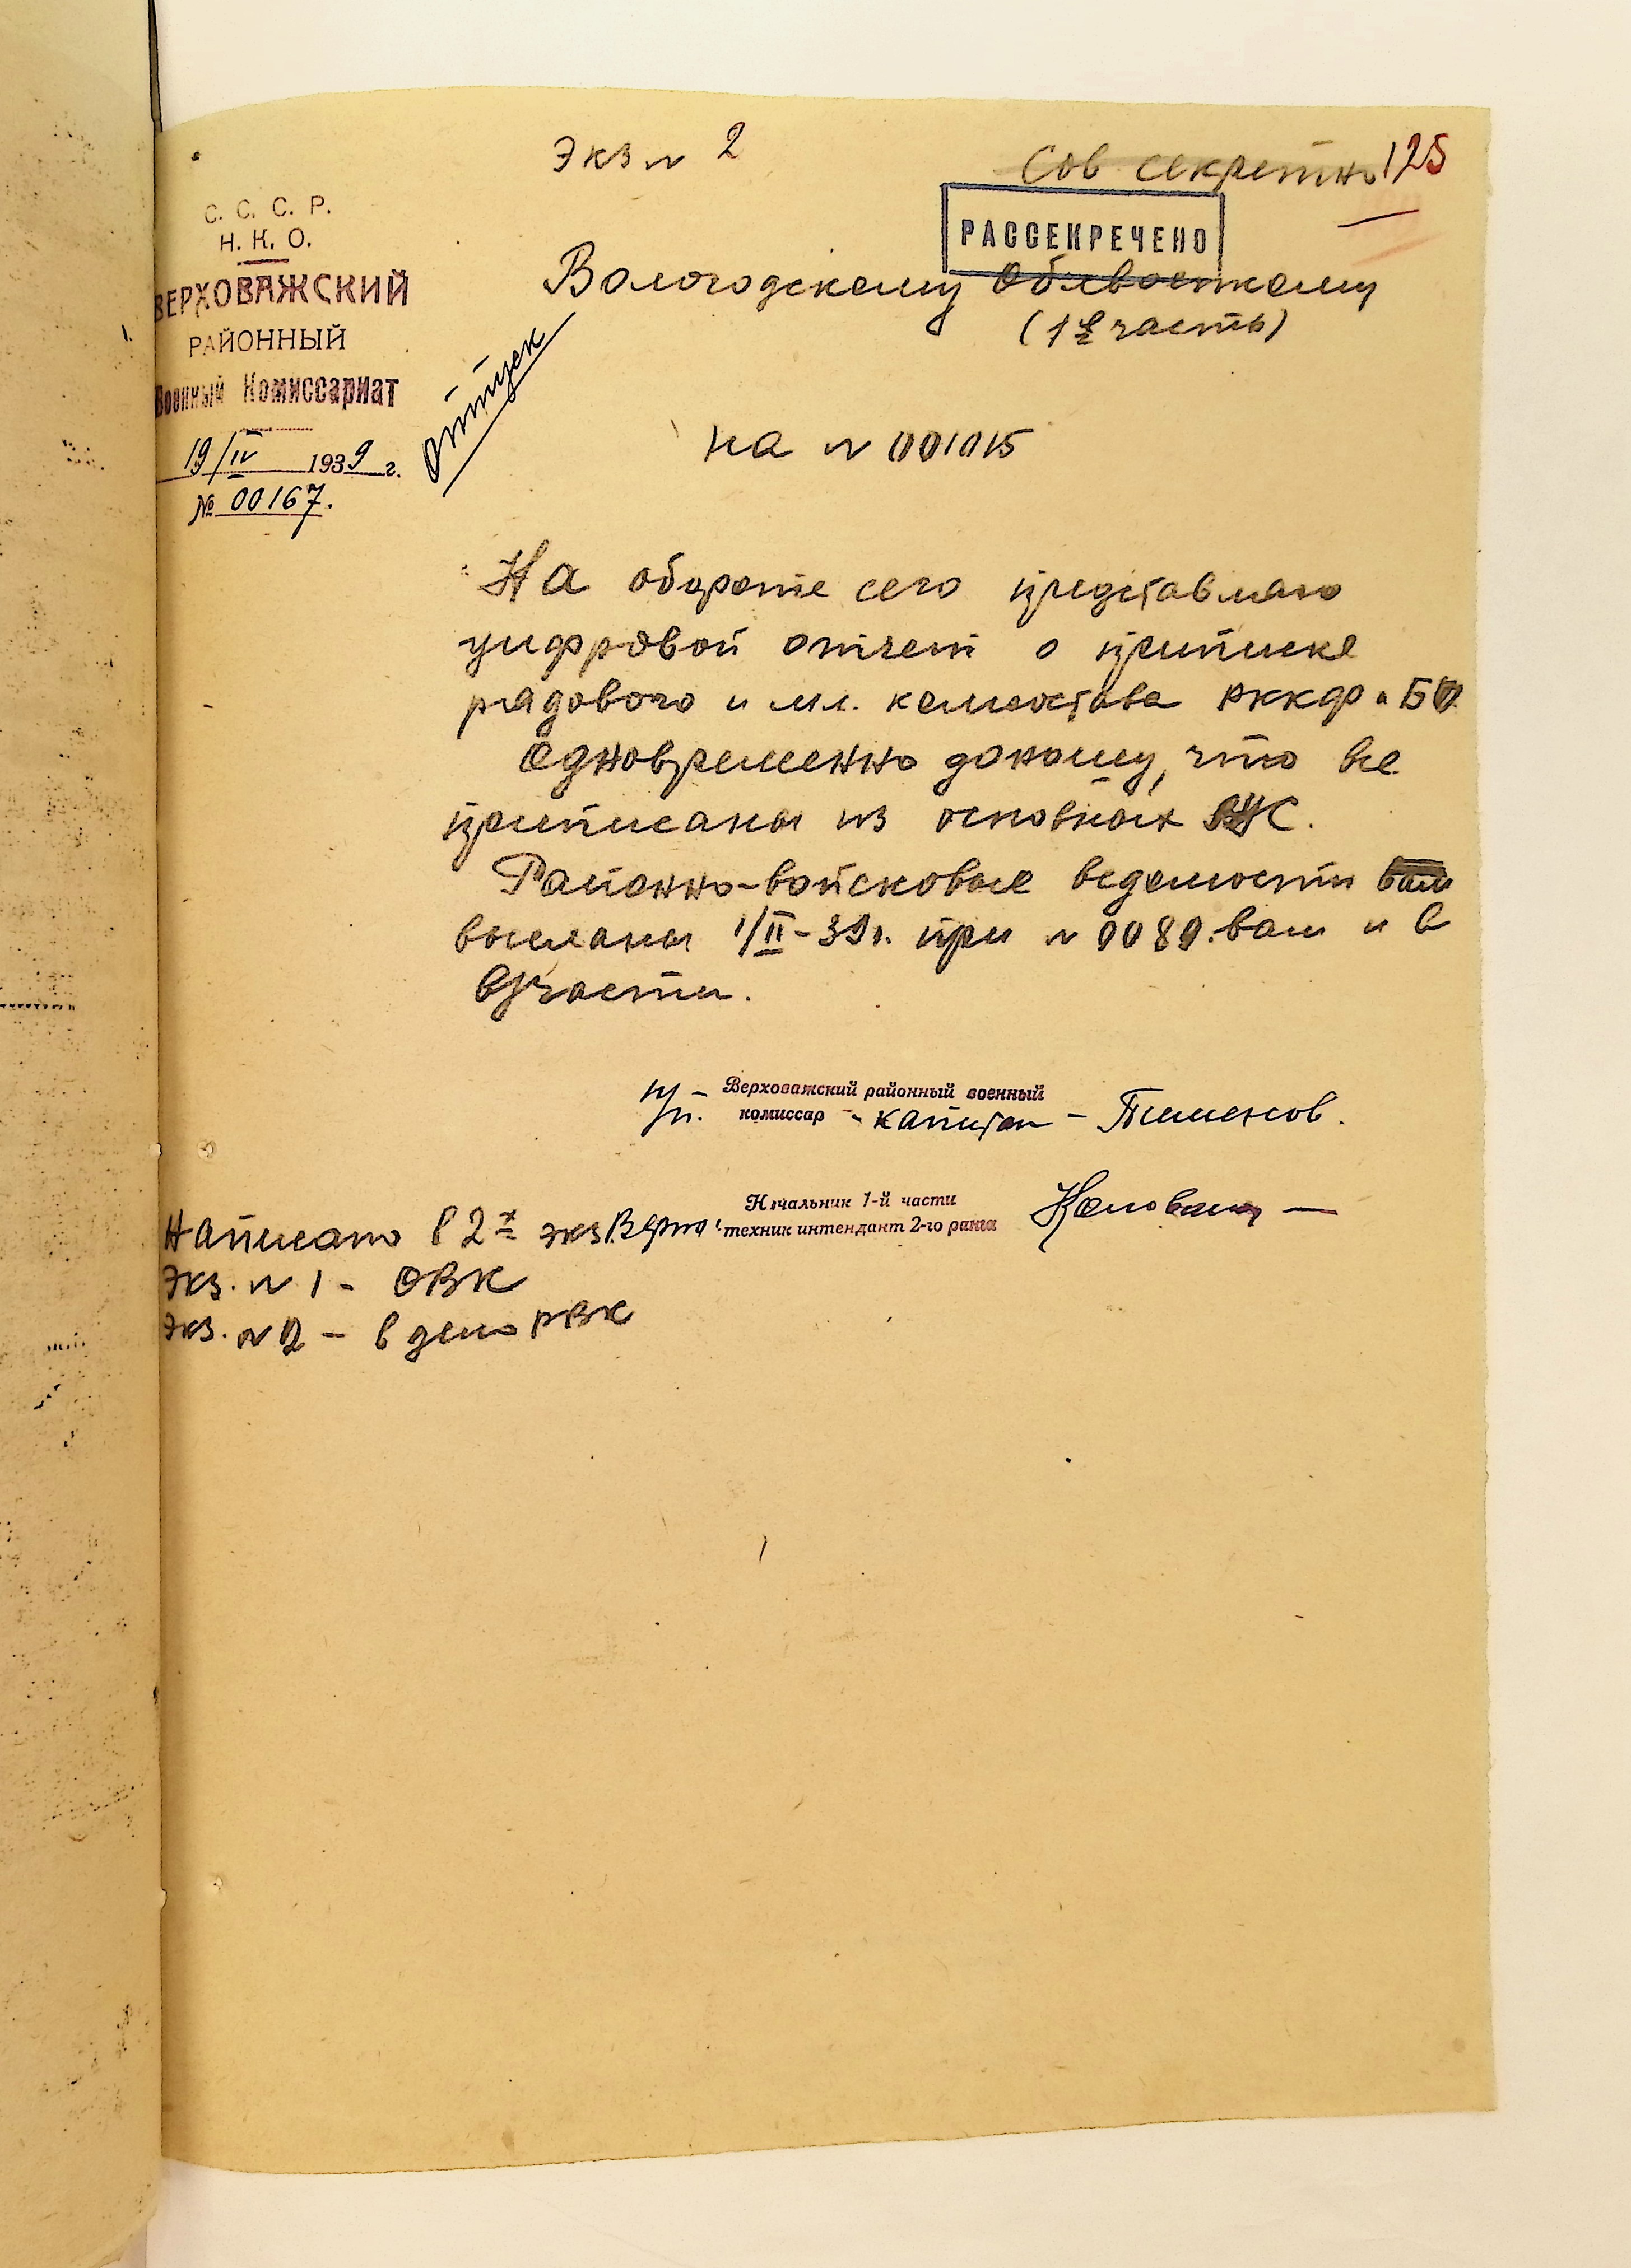 Экз № 2
Сов секретно 125
РАССЕКРЕЧЕНО
С. С. С. Р.
Н. К. О.
ВЕРХОВАЖСКИЙ
РАЙОННЫЙ
Военный Комиссариат
19/IV 1939 г.
№ 00167.
отпуск
Вологодскому Облвоенкому
(1я часть)
на № 001015
На обороте сего представляю
цифровой отчет о приписке
рядового и мл. комсостава РККФ и БО
Одновременно доношу, что все
приписаны из основных ВУС.
Районно-войсковые ведомости вам
высланы 1/II-39г. при № 0089. вам и в
в/части.
п/п. - Верховажский районный военный
комиссар - капитан - Пименов.
Верно: Начальник 1-й части
техник интендант 2-го ранга
Написано в 2х экз.
Экз. № 1 - ОВК
Экз. № 2 - в дело РВК